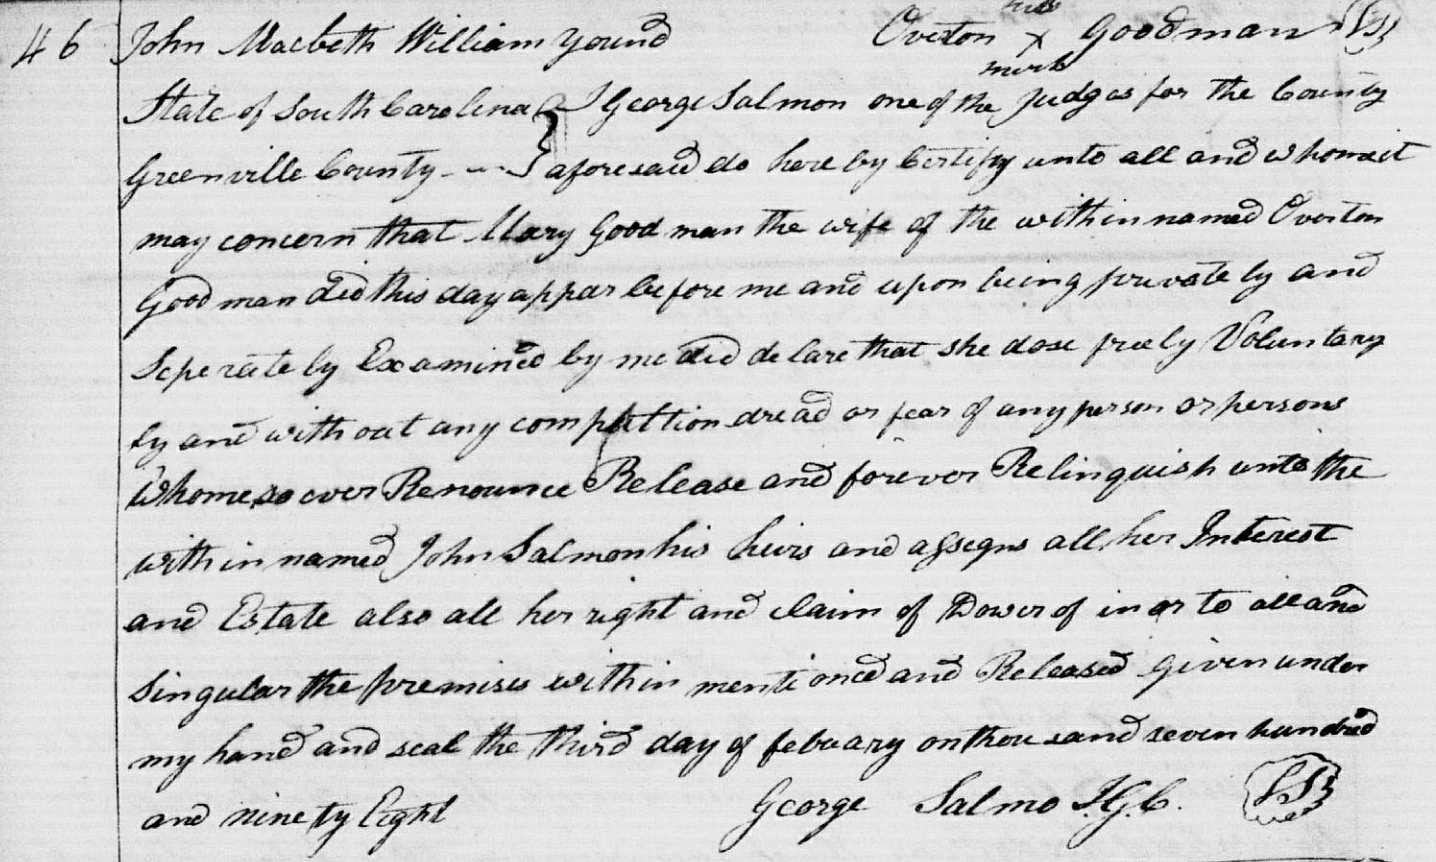 46 John Macbeth William Young Overton his x mark Goodman LS
State of South Carolina } I George Salmon one of the Judges for the County
Greenville County } aforesaid do here by Certify unto all and whomeit
may concern that Mary Goodman the wife of the within named Overton
Goodman did this day appar before me and upon being privately and
Seperately Examined by me did delare that she dose freely Voluntary
ly and with out any compultion dread or fear of any person or persons
Whomesoever Renounce Release and forever Relinquish unto the
within named John Salmon his heirs and assigns all her Interest
and Estate also all her right and claim of Dower of in or to all and
Singular the premises within mentioned and Released given under
my hand and seal the third day of febuary onthousand seven hundred
and ninety Eight George Salmo J.G.C. LS